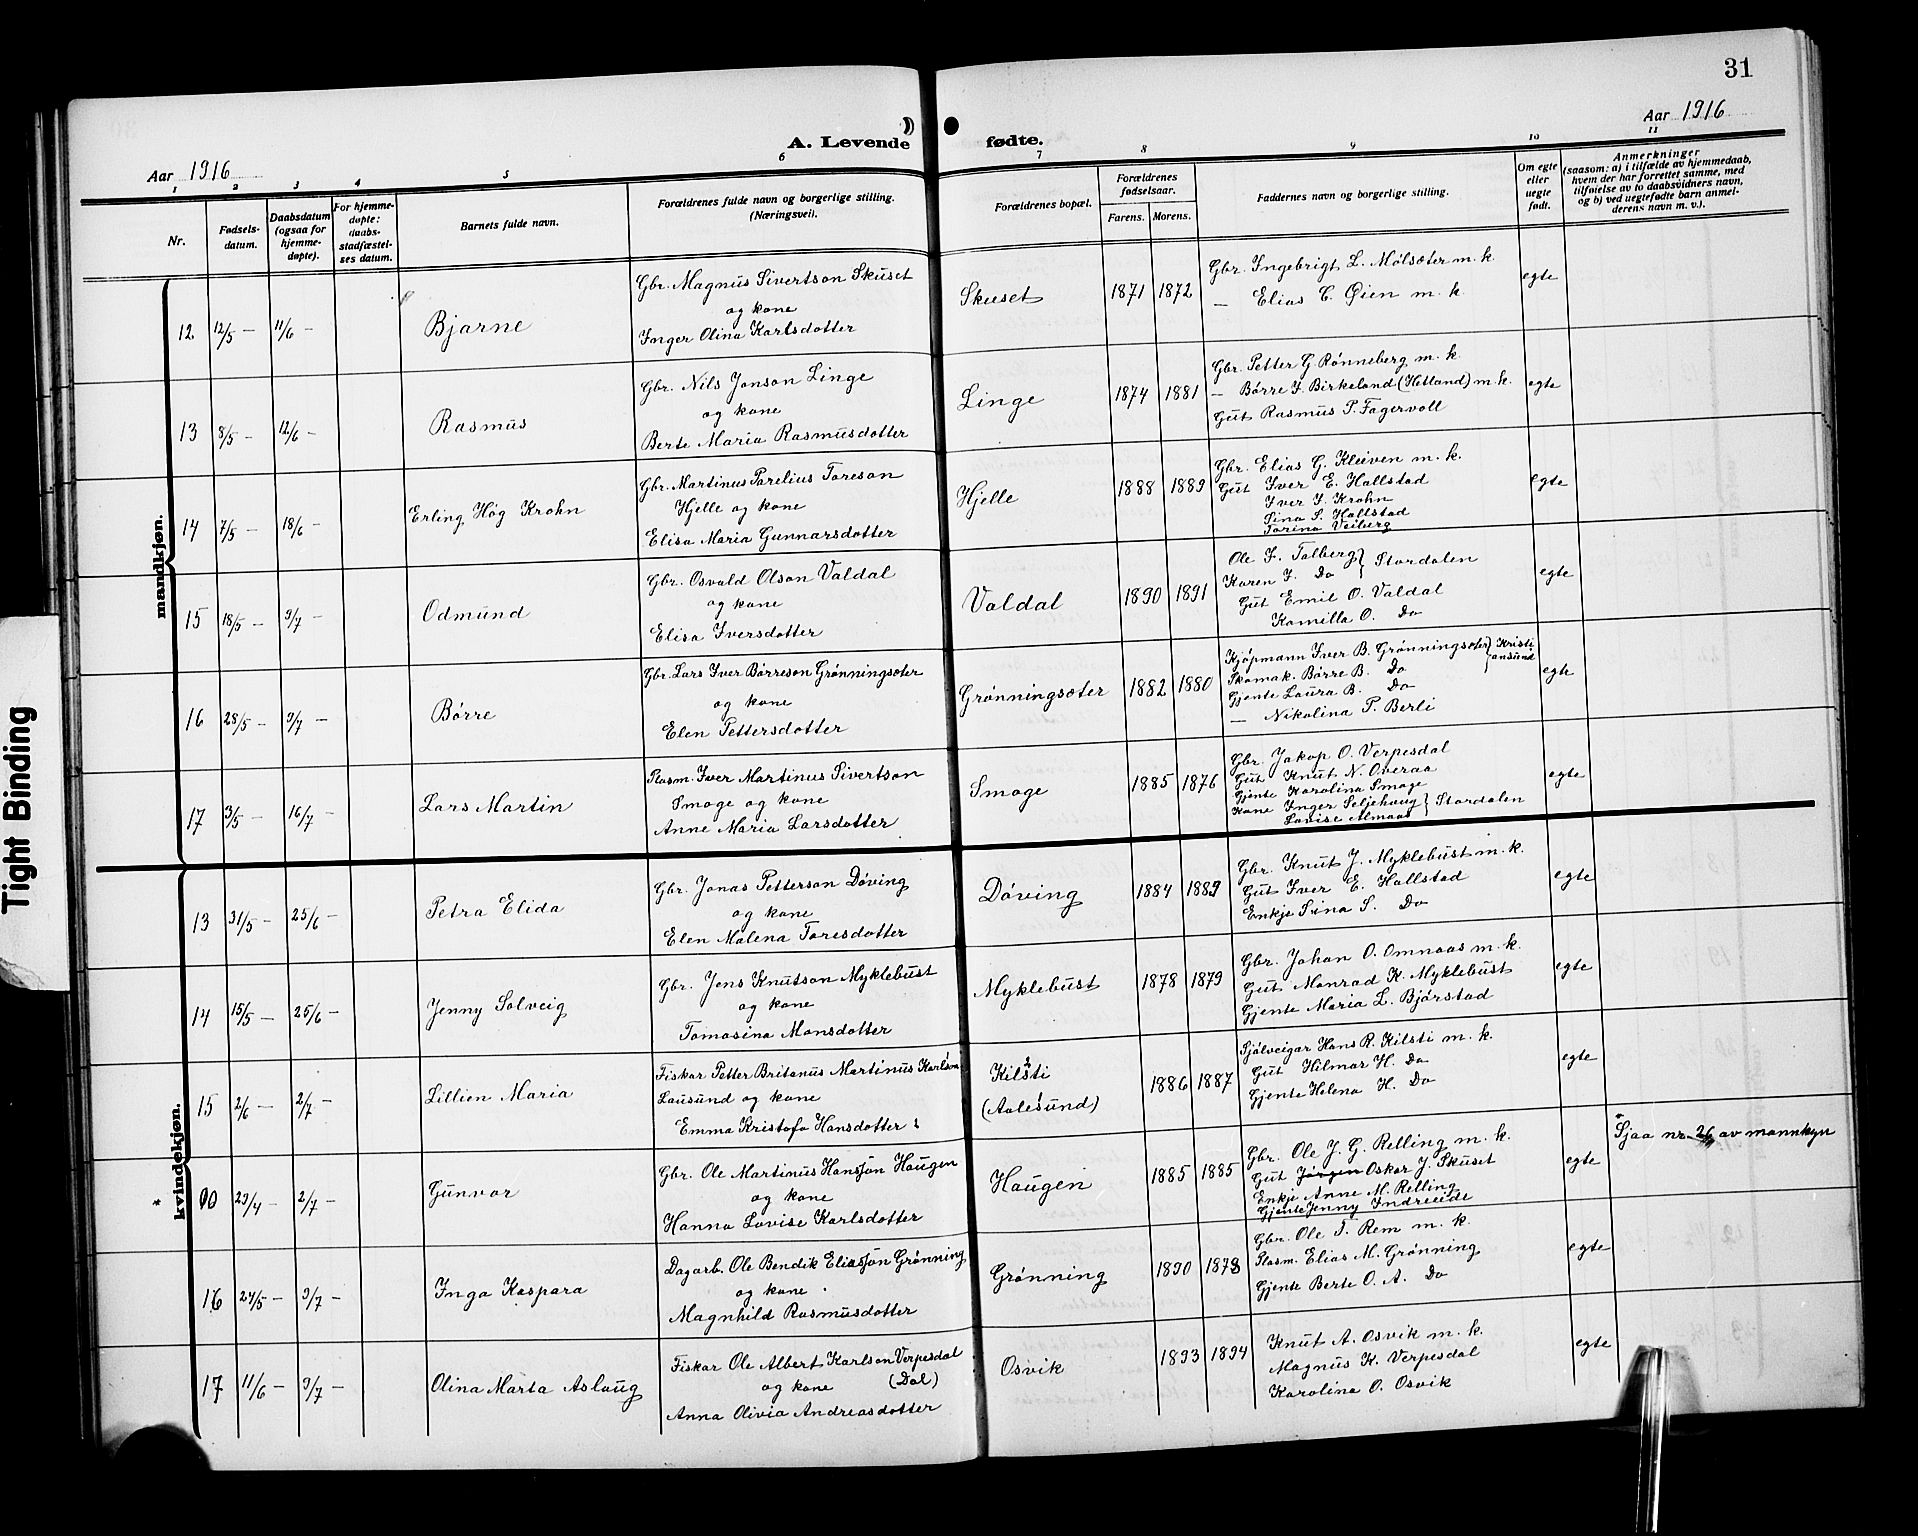 31
Aar 1916
A. Levende fødte.
Aar 1916
1 2 3 4 5 6 7 8 9 10 11
Nr.
Fødselsdatum.
Daabsdatum (ogsaa for hjemmedøpte).
For hjemmedøpte: daabsstadfæstelses datum.
Barnets fulde navn.
Forældrenes fulde navn og borgerlige stilling. (Næringsvei).
Forældrenes bopæl.
Forældrenes fødselsaar.
Farens. Morens.
Faddernes navn og borgerlige stilling.
Om egte eller uegte født.
Anmerkninger
(saasom: a) i tilfælde av hjemmedaab,
hvem der har forrettet samme, med
tilføielse av to daabsvidners navn,
og b) ved uegtefødte barn anmelderens navn m. v.).
mandkjøn.
12 12/5 — 11/6 — Bjarne
Gbr. Magnus Sivertson Skuset
og kone
Inger Olina Karlsdotter
Skuset 1871 1872
Gbr. Ingebrigt L. Mølsæter m. k.
— Elias C. Øien m. k.
egte
13 8/5 — 12/6 — Rasmus
Gbr. Nils Jonson Linge
og kone
Berte Maria Rasmusdotter
Linge 1874 1881
Gbr. Petter G. Rønneberg m. k.
— Børre J. Birkeland (Hetland) m. k.
Gut Rasmus P. Fagervoll
egte
14 7/5 — 18/6 — Erling Høg Krohn
Gbr. Martinus Parelius Toreson
Hjelle og kone
Elisa Maria Gunnarsdotter
Hjelle 1888 1889
Gbr. Elias G. Kleiven m. k.
Gut Iver E. Hallstad
Iver I. Krohn
Sina S. Hallstad
Torina Veiberg
egte
15 18/5 — 9/7 — Odmund
Gbr. Osvald Olson Valdal
og kone
Elisa Iversdotter
Valdal 1890 1891
Ole I. Talberg } Stordalen
Karen I. Do
Gut Emil O. Valdal
Kamilla O. Do
egte
16 28/5 — 9/7 — Børre
Gbr. Lars Iver Børreson Grønningsæter
og kone
Elen Pettersdotter
Grønningsæter 1882 1880
Kjøpmann Iver B. Grønningsæter } Kristiansund
Skomak. Børre B. Do
Gjente Laura B. Do
— Nikolina P. Berli
egte
17 3/5 — 16/7 — Lars Martin
Plasm. Iver Martinus Sivertson
Smoge og kone
Anne Maria Larsdotter
Smoge 1885 1876
Gbr. Jakop O. Verpesdal
Gut Knut N. Overaa
Gjente Karolina Smoge
Kone Inger Seljehaug } Stordalen
Lovise Almaas
egte
kvindekjøn.
13 31/5 — 25/6 — Petra Elida
Gbr. Jonas Petterson Døving
og kone
Elen Malena Toresdotter
Døving 1884 1889
Gbr. Knut J. Myklebust m. k.
Gut Iver E. Hallstad
Enkje Sina S. Do
egte
14 15/5 — 25/6 — Jenny Solveig
Gbr. Jens Knutson Myklebust
og kone
Tomasina Monsdotter
Myklebust 1878 1879
Gbr. Johan O. Omnaas m. k.
Gut Monrad K. Myklebust
Gjente Maria L. Bjørstad
egte
15 2/6 — 2/7 — Lillien Maria
Fiskar Petter Britanus Martinus Karlson
Lausund og kone
Emma Kristofa Hansdotter
Kilsti
(Aalesund)
1886 1887
Sjølveigar Hans R. Kilsti m. k.
Gut Hilmar H. Do
Gjente Helena H. Do
egte
* 00 29/4 — 2/7 — Gunvor
Gbr. Ole Martinus Hansson Haugen
og kone
Hanna Lovise Karlsdotter
Haugen 1885 1885
Gbr. Ole J. G. Relling m. k.
Gut Jørgen Oskar J. Skuset
Enkje Anne M. Relling
Gjente Jenny Indreeide
egte
* Sjaa nr 26 av mannkyn
16 24/5 — 9/7 — Inga Kaspara
Dagarb. Ole Bendik Eliasson Grønning
og kone
Magnhild Rasmusdotter
Grønning 1890 1878
Gbr. Ole T. Rem m. k.
Plasm. Elias M. Grønning
Gjente Berte O. A. Do
egte
17 11/6 — 9/7 — Olina Marta Aslaug
Fiskar Ole Albert Karlson Verpesdal
og kone (Dal)
Anna Olivia Andreasdotter
Osvik 1893 1894
Knut A. Osvik m. k.
Magnus K. Verpesdal
Karolina O. Osvik
egte
Tight Binding